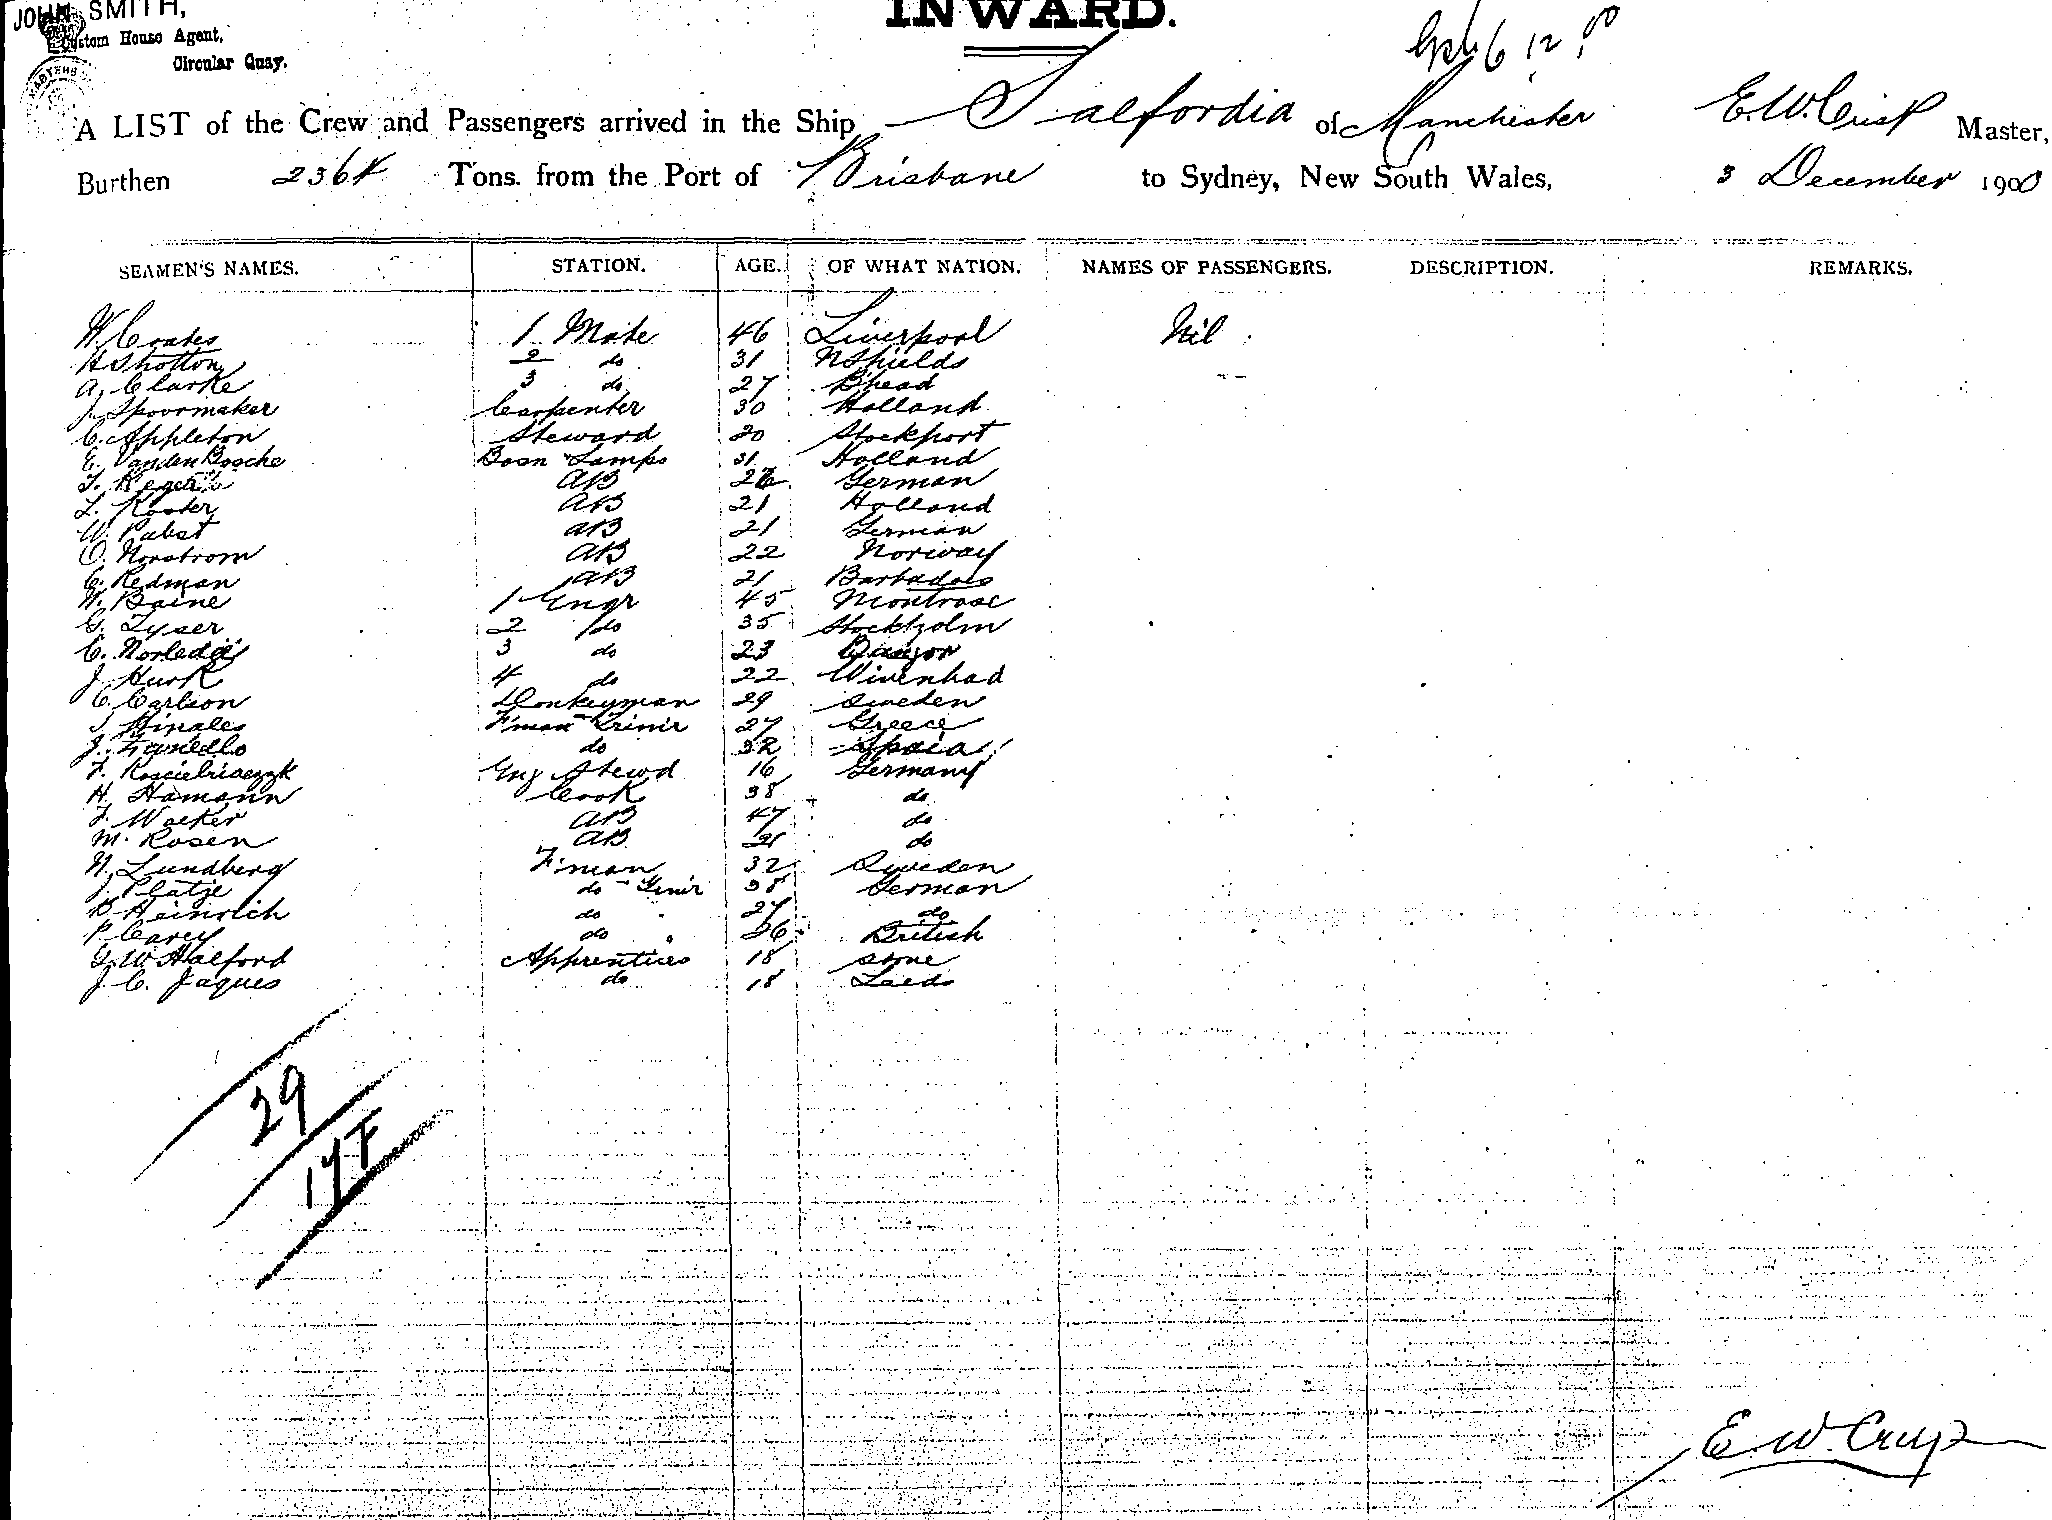 JOHN SMITH,
INWARD.
Custom House Agent,
Circular Quay.
A LIST of the Crew and Passengers arrived in the Ship Salfordia of Manchester E.W. Crisp Master,
Burthen 2364 Tons from the Port of Brisbane to Sydney, New South Wales, 3 December 1900
SEAMEN'S NAMES. STATION. AGE. OF WHAT NATION. NAMES OF PASSENGERS. DESCRIPTION. REMARKS.
W. Coates 1 Mate 46 Liverpool Nil
H Shotton 2 do 31 N Shields
A. Clarke 3 do 27 B'head
J. Spoormaker Carpenter 30 Holland
C. Appleton Steward 20 Stockport
E. VandenBosche Bosn Lamps 31 Holland
AB German
L. Koster AB 21 Holland
W. Pabst AB 21 German
O. Norstrom AB 22 Norway
C. Redman AB 21 Barbados
W. Baine 1 Engr 45 Montrose
G. Zyser 2 do 35 Stockholm
C. 3 do 23 Bangor
J. Hurk 4 do 22
C. Carlson Donkeyman 29 Sweden
F'man 27 Greece
J. do 32 Spain
F. Koscielniaczyk Eng Stewd 16 Germany
H. Hamann Cook 38 do
AB 47 do
M. Rosen AB 21 do
N. Lundberg F'man 32 Sweden
J. Platje do 38 German
Heinrich do " 27 do
P Carey do " 26 British
J. W Halford Apprentices 18 Stone
J. C. Jaques do 18 Leeds
29
17F
E. W. Crisp